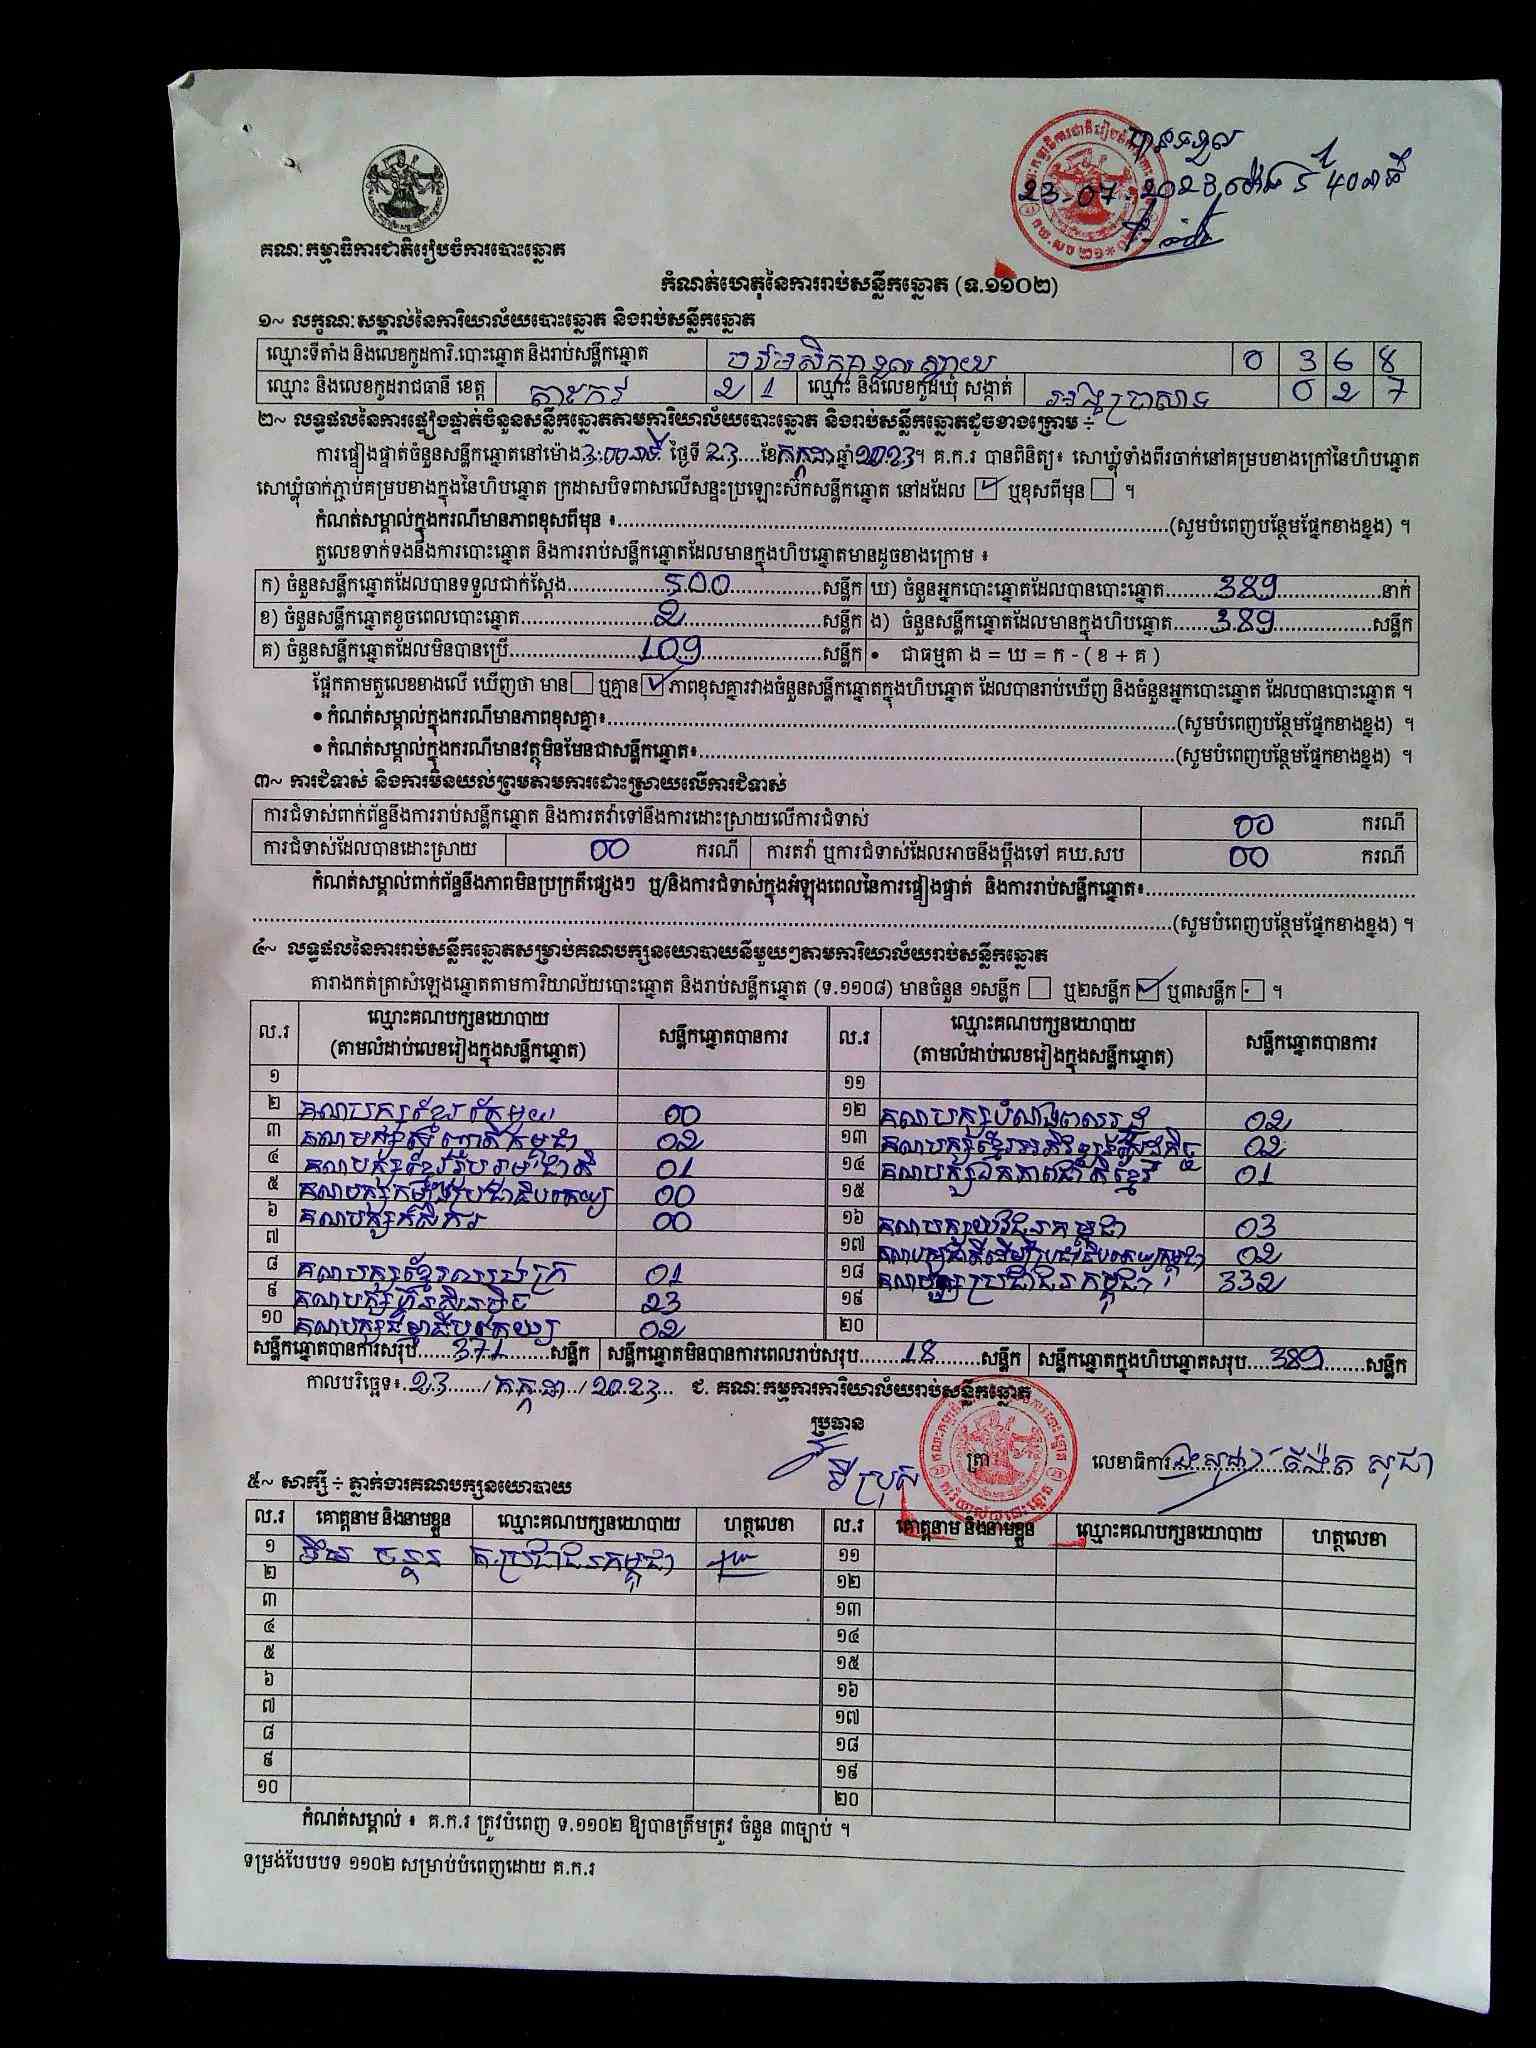 បានទទួល
23-07-2023 ម៉ោង 40នាទី
គណៈកម្មាធិការជាតិរៀបចំការបោះឆ្នោត
កំណត់ហេតុនៃការរាប់សន្លឹកឆ្នោត (ទ.១១០២)
១~ លក្ខណៈសម្គាល់នៃការិយាល័យបោះឆ្នោត និងរាប់សន្លឹកឆ្នោត
ឈ្មោះទីតាំង និងលេខកូដការិ.បោះឆ្នោត និងរាប់សន្លឹកឆ្នោត 0 3 6 8
ឈ្មោះ និងលេខកូដរាជធានី ខេត្ត តាកែវ 2 1 ឈ្មោះ និងលេខកូដឃុំ សង្កាត់ អង្គប្រាសាទ 0 2 7
២~ លទ្ធផលនៃការផ្ទៀងផ្ទាត់ចំនួនសន្លឹកឆ្នោតតាមការិយាល័យបោះឆ្នោត និងរាប់សន្លឹកឆ្នោតដូចខាងក្រោម ÷
ការផ្ទៀងផ្ទាត់ចំនួនសន្លឹកឆ្នោតនៅម៉ោង 3:00 នាទី ថ្ងៃទី 23 ខែ កក្កដា ឆ្នាំ 2023។ គ.ក.រ បានពិនិត្យ៖ សោឃ្លុំទាំងពីរចាក់នៅគម្របខាងក្រៅនៃហិបឆ្នោត
សោឃ្លុំចាក់ភ្ជាប់គម្របខាងក្នុងនៃហិបឆ្នោត ក្រដាសបិទពាសលើសន្ទះប្រឡោះស៊កសន្លឹកឆ្នោត នៅដដែល ☑ ឬខុសពីមុន ☐ ។
កំណត់សម្គាល់ក្នុងករណីមានភាពខុសពីមុន ៖..........(សូមបំពេញបន្ថែមផ្នែកខាងខ្នង) ។
តួលេខទាក់ទងនឹងការបោះឆ្នោត និងការរាប់សន្លឹកឆ្នោតដែលមានក្នុងហិបឆ្នោតមានដូចខាងក្រោម ៖
ក) ចំនួនសន្លឹកឆ្នោតដែលបានទទួលជាក់ស្តែង..........500..........សន្លឹក ឃ) ចំនួនអ្នកបោះឆ្នោតដែលបានបោះឆ្នោត..........389..........នាក់
ខ) ចំនួនសន្លឹកឆ្នោតខូចពេលបោះឆ្នោត..........2..........សន្លឹក ង) ចំនួនសន្លឹកឆ្នោតដែលមានក្នុងហិបឆ្នោត..........389..........សន្លឹក
គ) ចំនួនសន្លឹកឆ្នោតដែលមិនបានប្រើ..........109..........សន្លឹក • ជាធម្មតា ង = ឃ = ក - ( ខ + គ )
ផ្អែកតាមតួលេខខាងលើ ឃើញថា មាន ☐ ឬគ្មាន ☑ ភាពខុសគ្នារវាងចំនួនសន្លឹកឆ្នោតក្នុងហិបឆ្នោត ដែលបានរាប់ឃើញ និងចំនួនអ្នកបោះឆ្នោត ដែលបានបោះឆ្នោត ។
• កំណត់សម្គាល់ក្នុងករណីមានភាពខុសគ្នា៖..........(សូមបំពេញបន្ថែមផ្នែកខាងខ្នង) ។
• កំណត់សម្គាល់ក្នុងករណីមានវត្ថុមិនមែនជាសន្លឹកឆ្នោត៖..........(សូមបំពេញបន្ថែមផ្នែកខាងខ្នង) ។
៣~ ការជំទាស់ និងការមិនយល់ព្រមតាមការដោះស្រាយលើការជំទាស់
ការជំទាស់ពាក់ព័ន្ធនឹងការរាប់សន្លឹកឆ្នោត និងការតវ៉ាទៅនឹងការដោះស្រាយលើការជំទាស់ 00 ករណី
ការជំទាស់ដែលបានដោះស្រាយ 00 ករណី ការតវ៉ា ឬការជំទាស់ដែលអាចនឹងប្តឹងទៅ គឃ.សប 00 ករណី
កំណត់សម្គាល់ពាក់ព័ន្ធនឹងភាពមិនប្រក្រតីផ្សេងៗ ឬ/និងការជំទាស់ក្នុងអំឡុងពេលនៃការផ្ទៀងផ្ទាត់ និងការរាប់សន្លឹកឆ្នោត៖..........
..........(សូមបំពេញបន្ថែមផ្នែកខាងខ្នង) ។
៤~ លទ្ធផលនៃការរាប់សន្លឹកឆ្នោតសម្រាប់គណបក្សនយោបាយនីមួយៗតាមការិយាល័យរាប់សន្លឹកឆ្នោត
តារាងកត់ត្រាសំឡេងឆ្នោតតាមការិយាល័យបោះឆ្នោត និងរាប់សន្លឹកឆ្នោត (ទ.១១០៨) មានចំនួន ១សន្លឹក ☐ ឬ២សន្លឹក ☑ ឬ៣សន្លឹក ☐ ។
ល.រ ឈ្មោះគណបក្សនយោបាយ (តាមលំដាប់លេខរៀងក្នុងសន្លឹកឆ្នោត) សន្លឹកឆ្នោតបានការ ល.រ ឈ្មោះគណបក្សនយោបាយ (តាមលំដាប់លេខរៀងក្នុងសន្លឹកឆ្នោត) សន្លឹកឆ្នោតបានការ
១ ១១
២ គណបក្សខ្មែរតែមួយ 00 ១២ គណបក្សបំណងពលរដ្ឋ 02
៣ គណបក្សសំបុកឃ្មុំកម្ពុជា 02 ១៣ គណបក្សខ្មែរអភិវឌ្ឍន៍សេដ្ឋកិច្ច 02
៤ គណបក្សខ្មែររួបរួមជាតិ 01 ១៤ គណបក្សឯកភាពជាតិខ្មែរ 01
៥ គណបក្សកម្លាំងប្រជាធិបតេយ្យ 00 ១៥
៦ គណបក្សកសិករ 00 ១៦ គណបក្សយុវជនកម្ពុជា 03
៧ ១៧ 02
៨ គណបក្សខ្មែរឈប់ក្រ 01 ១៨ គណបក្សប្រជាជនកម្ពុជា 332
៩ គណបក្សហ៊្វុនស៊ិនប៉ិច 23 ១៩
១០ គណបក្សធម្មាធិបតេយ្យ 02 ២០
សន្លឹកឆ្នោតបានការសរុប.....371.....សន្លឹក សន្លឹកឆ្នោតមិនបានការពេលរាប់សរុប.....18.....សន្លឹក សន្លឹកឆ្នោតក្នុងហិបឆ្នោតសរុប.....389.....សន្លឹក
កាលបរិច្ឆេទ៖ 23 / កក្កដា / 2023 ជ. គណៈកម្មការការិយាល័យរាប់សន្លឹកឆ្នោត
ប្រធាន
ត្រា លេខាធិការ
៥~ សាក្សី ÷ ភ្នាក់ងារគណបក្សនយោបាយ
ល.រ គោត្តនាម និងនាមខ្លួន ឈ្មោះគណបក្សនយោបាយ ហត្ថលេខា ល.រ គោត្តនាម និងនាមខ្លួន ឈ្មោះគណបក្សនយោបាយ ហត្ថលេខា
១ គ.ប្រជាជនកម្ពុជា ១១
២ ១២
៣ ១៣
៤ ១៤
៥ ១៥
៦ ១៦
៧ ១៧
៨ ១៨
៩ ១៩
១០ ២០
កំណត់សម្គាល់ ៖ គ.ក.រ ត្រូវបំពេញ ទ.១១០២ ឱ្យបានត្រឹមត្រូវ ចំនួន ៣ច្បាប់ ។
ទម្រង់បែបបទ ១១០២ សម្រាប់បំពេញដោយ គ.ក.រ